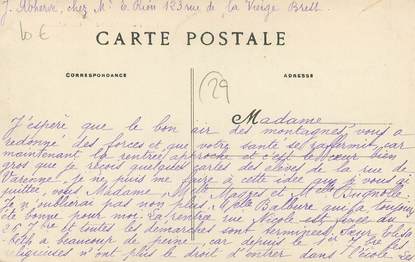 J. Abhervé, chez Mr E. Rion 123 rue de la Vierge Brest
10 €
CARTE POSTALE
CORRESPONDANCE
ADRESSE
(29
Madame
J'espère que le bon air des montagnes vous a
redonné des forces et que votre santé se raffermit, car
maintenant la rentrée approche et c'est le cœur bien
gros que je reçois quelques cartes des élèves de la rue de
Varenne, je ne puis me faire à cette idée que je vous ai
quittée, vous Madame, Melle Mages et Melle
Je n'oublierai pas non plus Melle Balbure qui fut toujours
été bonne pour moi. La rentrée rue Nicole est fixée du
25 7bre et toutes les démarches sont terminées. Sœur Elisa
beth a beaucoup de peine car depuis le 1er 7bre les
religieuses n'ont plus le droit d'entrer dans l'école. Les